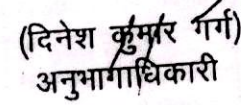 (दिनेश कुमार गर्ग)
अनुभागाधिकारी